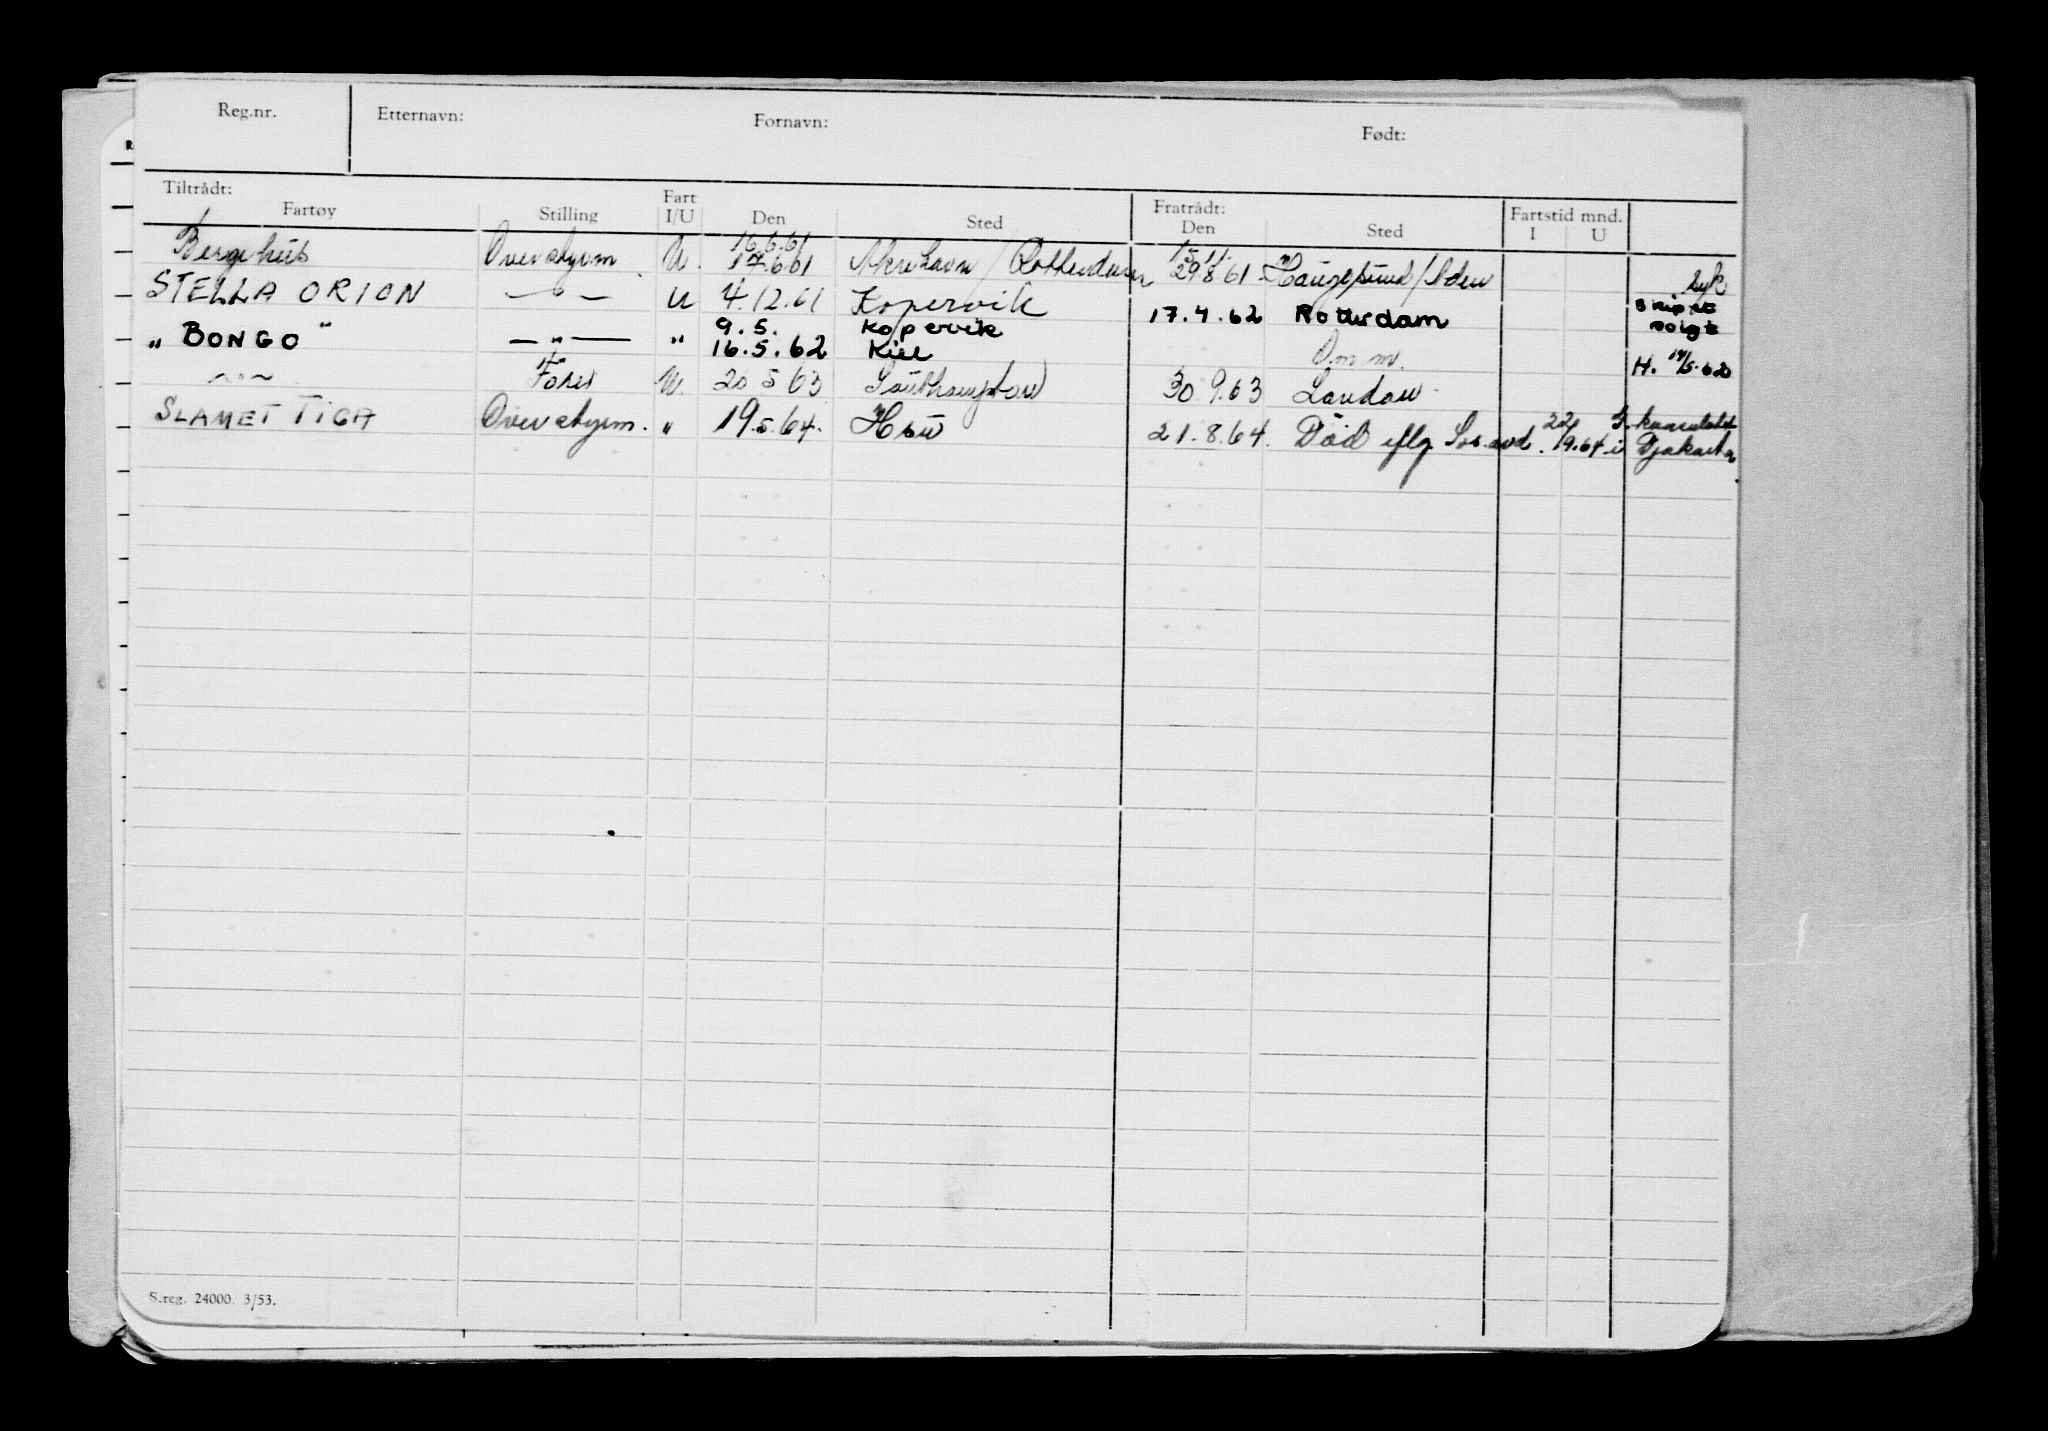 Reg.nr. Etternavn: Fornavn: Født:
Tiltrådt: Fart Fratrådt: Fartstid mnd.
Fartøy Stilling I/U Den Sted Den Sted I U
16.6.61 15.11.
Bergehus Overstyrm U. 17.6.61 Åkrehavn / Rotterdam 29.8.61 Haugesund / Aden syk
STELLA ORION — " — U 4.12.61 Kopervik 17.4.62 Rotterdam Skipet solgt
9.5. Kopervik
„ BONGO " — " — " 16.5.62 Kiel Omm. H. 19/5-62
— " — Første U. 20 5 63 Southampton 30.9.63 London
SLAMET TIGA Overstyrm. " 19.5.64. H 21.8.64. Död iflg. avd. 22/9.64 i Djakarta.
S.reg. 24000. 3/53.